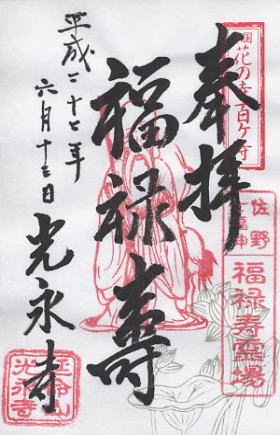 奉拝
福禄寿
平成二十七年
六月十三日
光永寺
花の寺百ヶ寺
佐野
七福神
福禄寿霊場
光永寺